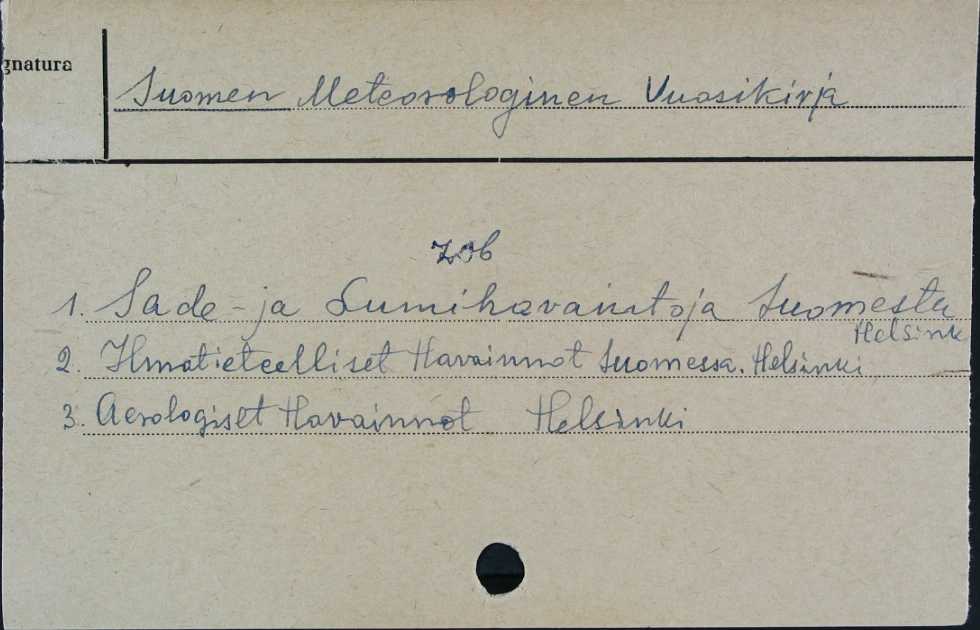 gnatura
Suomen Meteorologinen Vuosikirja
zob
1. Sade-ja Lumihavaintoja Suomesta
Helsink
2. Ilmatieteelliset Havainnot Suomessa. Helsinki
3. Aerologiset Havainnot Helsinki